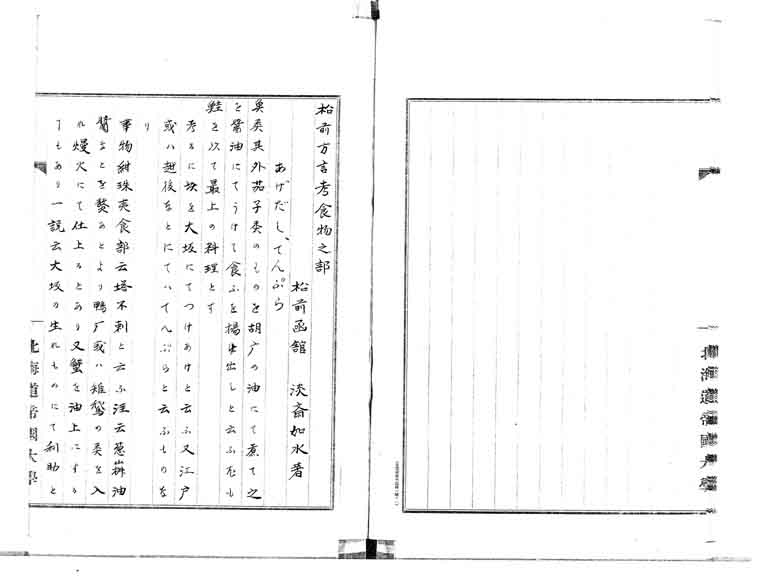 松前方言考食物之部
松前函館 淡斎如水著
あげだし、てんぷら
魚類其外茄子類のものを胡广の油にて煮て之
を醤油にてうけて食ふを揚出しと云ふ尤も
鮭を以て最上の料理とす
考るに坂を大坂にてつけあけと云ふ又江戸
或ハ越後などにてハてんぷらと云ふものな
り
事物紺珠夷食部云塔不刺と云ふ注云葱油
醤などを熬あとより鴨厂或ハ雉の類を入
れ慢火にて仕上るとあり又蟹を油上にする
丁もあり一説云大坂の生れものにて利助と
北海道帝国大学